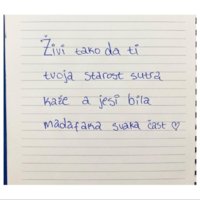 Živi tako da ti
tvoja starost sutra
kaže a jesi bila
madafaka svaka čast ♡